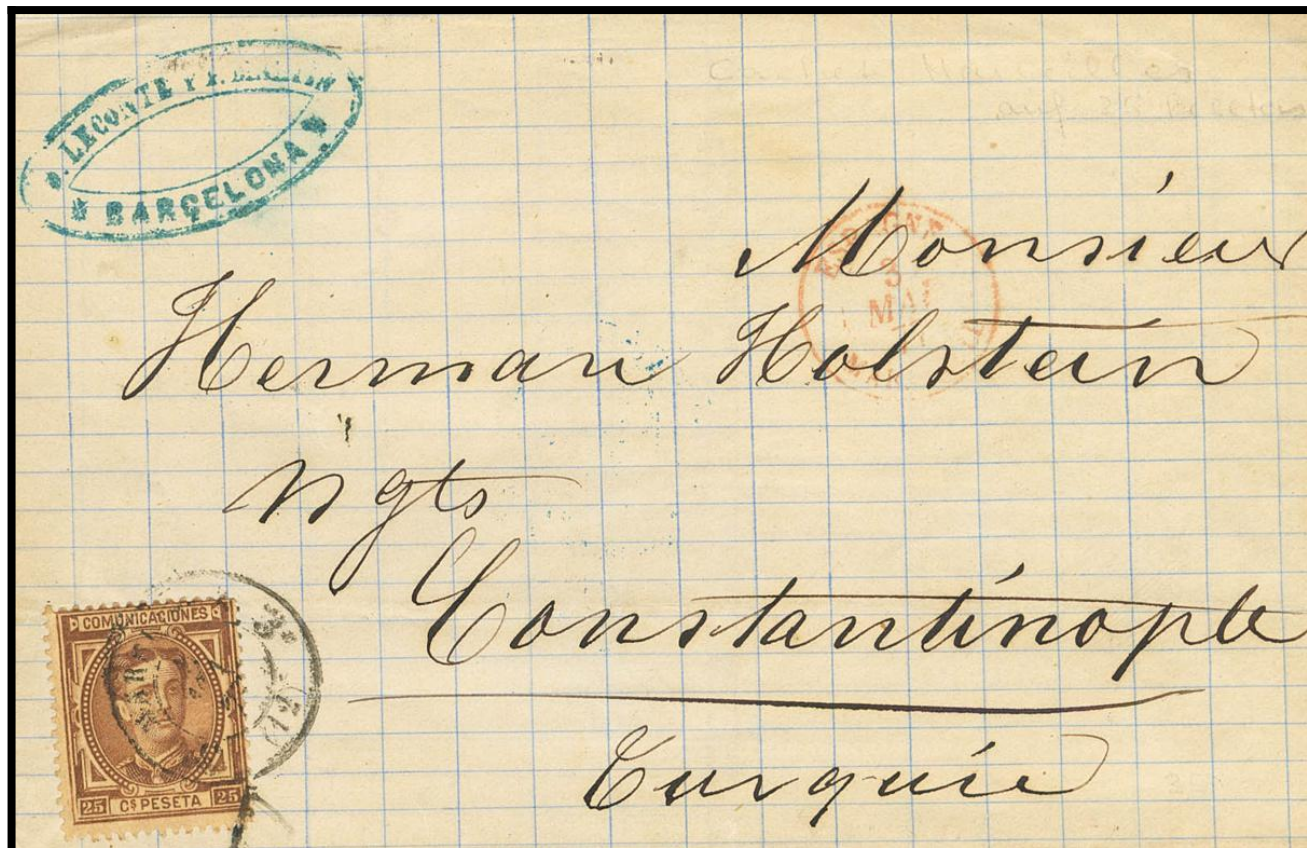 LECONTE Y
BARCELONA
ESPAGNE
3
MAI
Monsieur
Herman Holstein
Ngts
Constantinople
Turquie
COMUNICACIONES
25 Cs PESETA 25